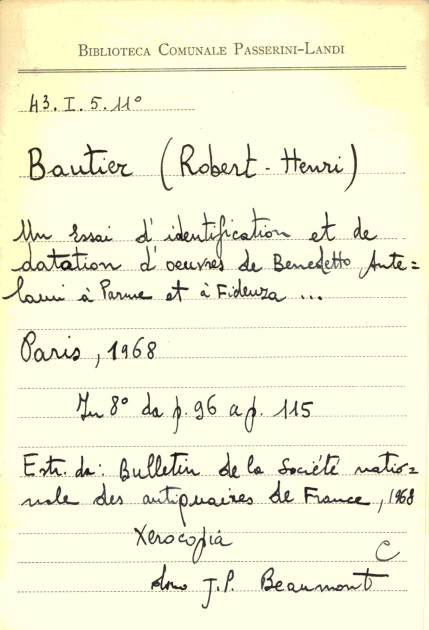 BIBLIOTECA COMUNALE PASSERINI-LANDI
43. I. 5. 11°
Bautier (Robert-Henri)
Un Essai d'identification et de
datation d'oeuvres de Benedetto Ante=
lami à Parme et à Fidenza ...
Paris, 1968
In 8° da p. 96 a p. 115
Estr. da: Bulletin de la Société natio=
nale des antiquaires de France, 1968
Xerocopia
C
dono J.P. Beaumont